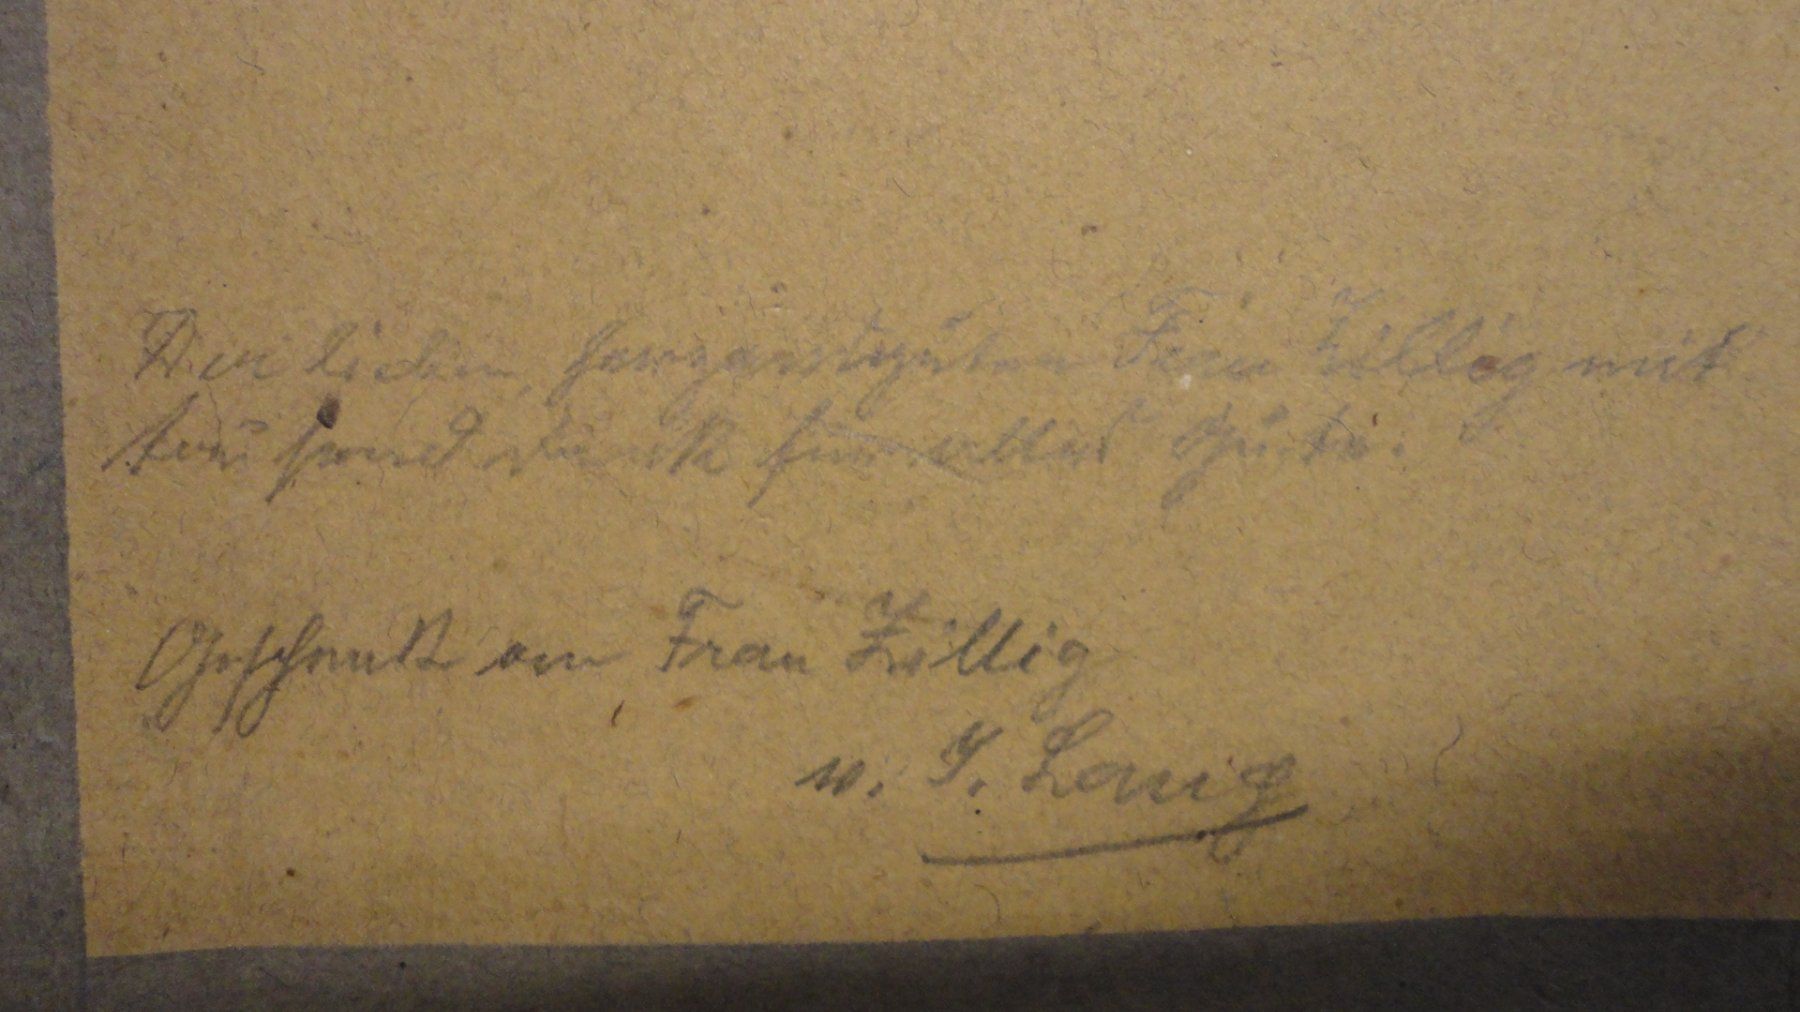 Der lieben, herzensguten Frau Zillig mit
tausend Dank für alles Gute.
Geschenk an Frau Zillig
v. J. Lang